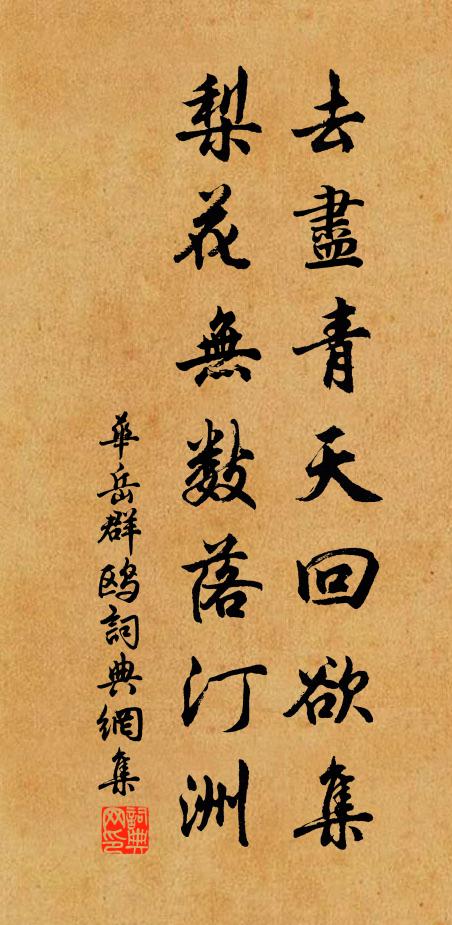 去盡青天回欲集
梨花無数落汀洲
華岳群鸥詞典網集
詞典網印